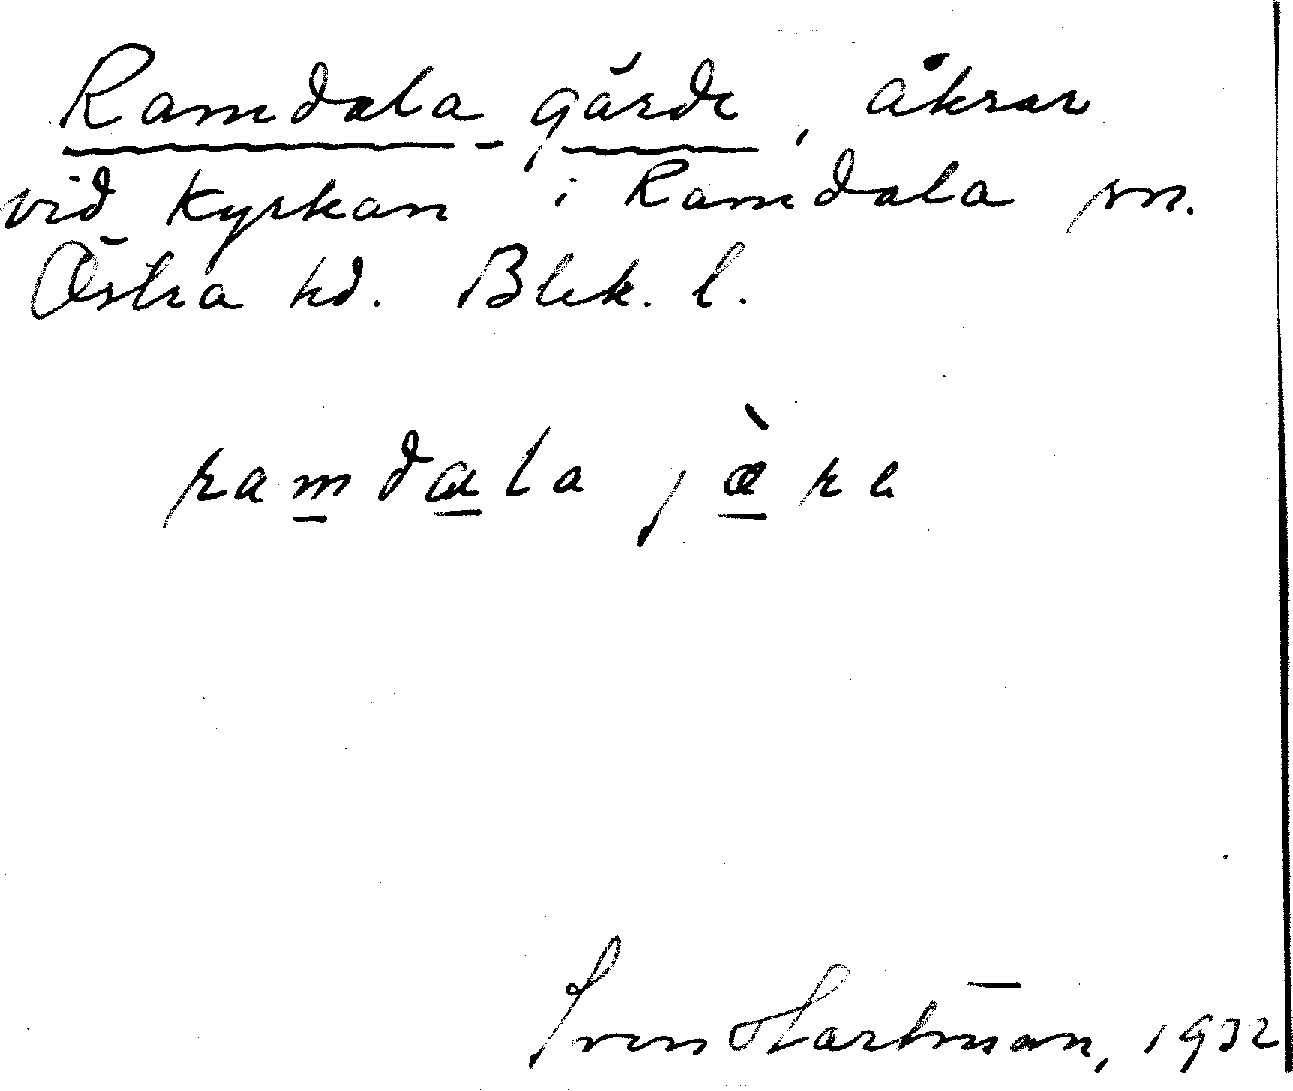 Ramdala gärde, åkrar
vid kyrkan i Ramdala sn.
Östra hd. Blek. l.
ramdala jæ̀re
Sven Hartman, 1932